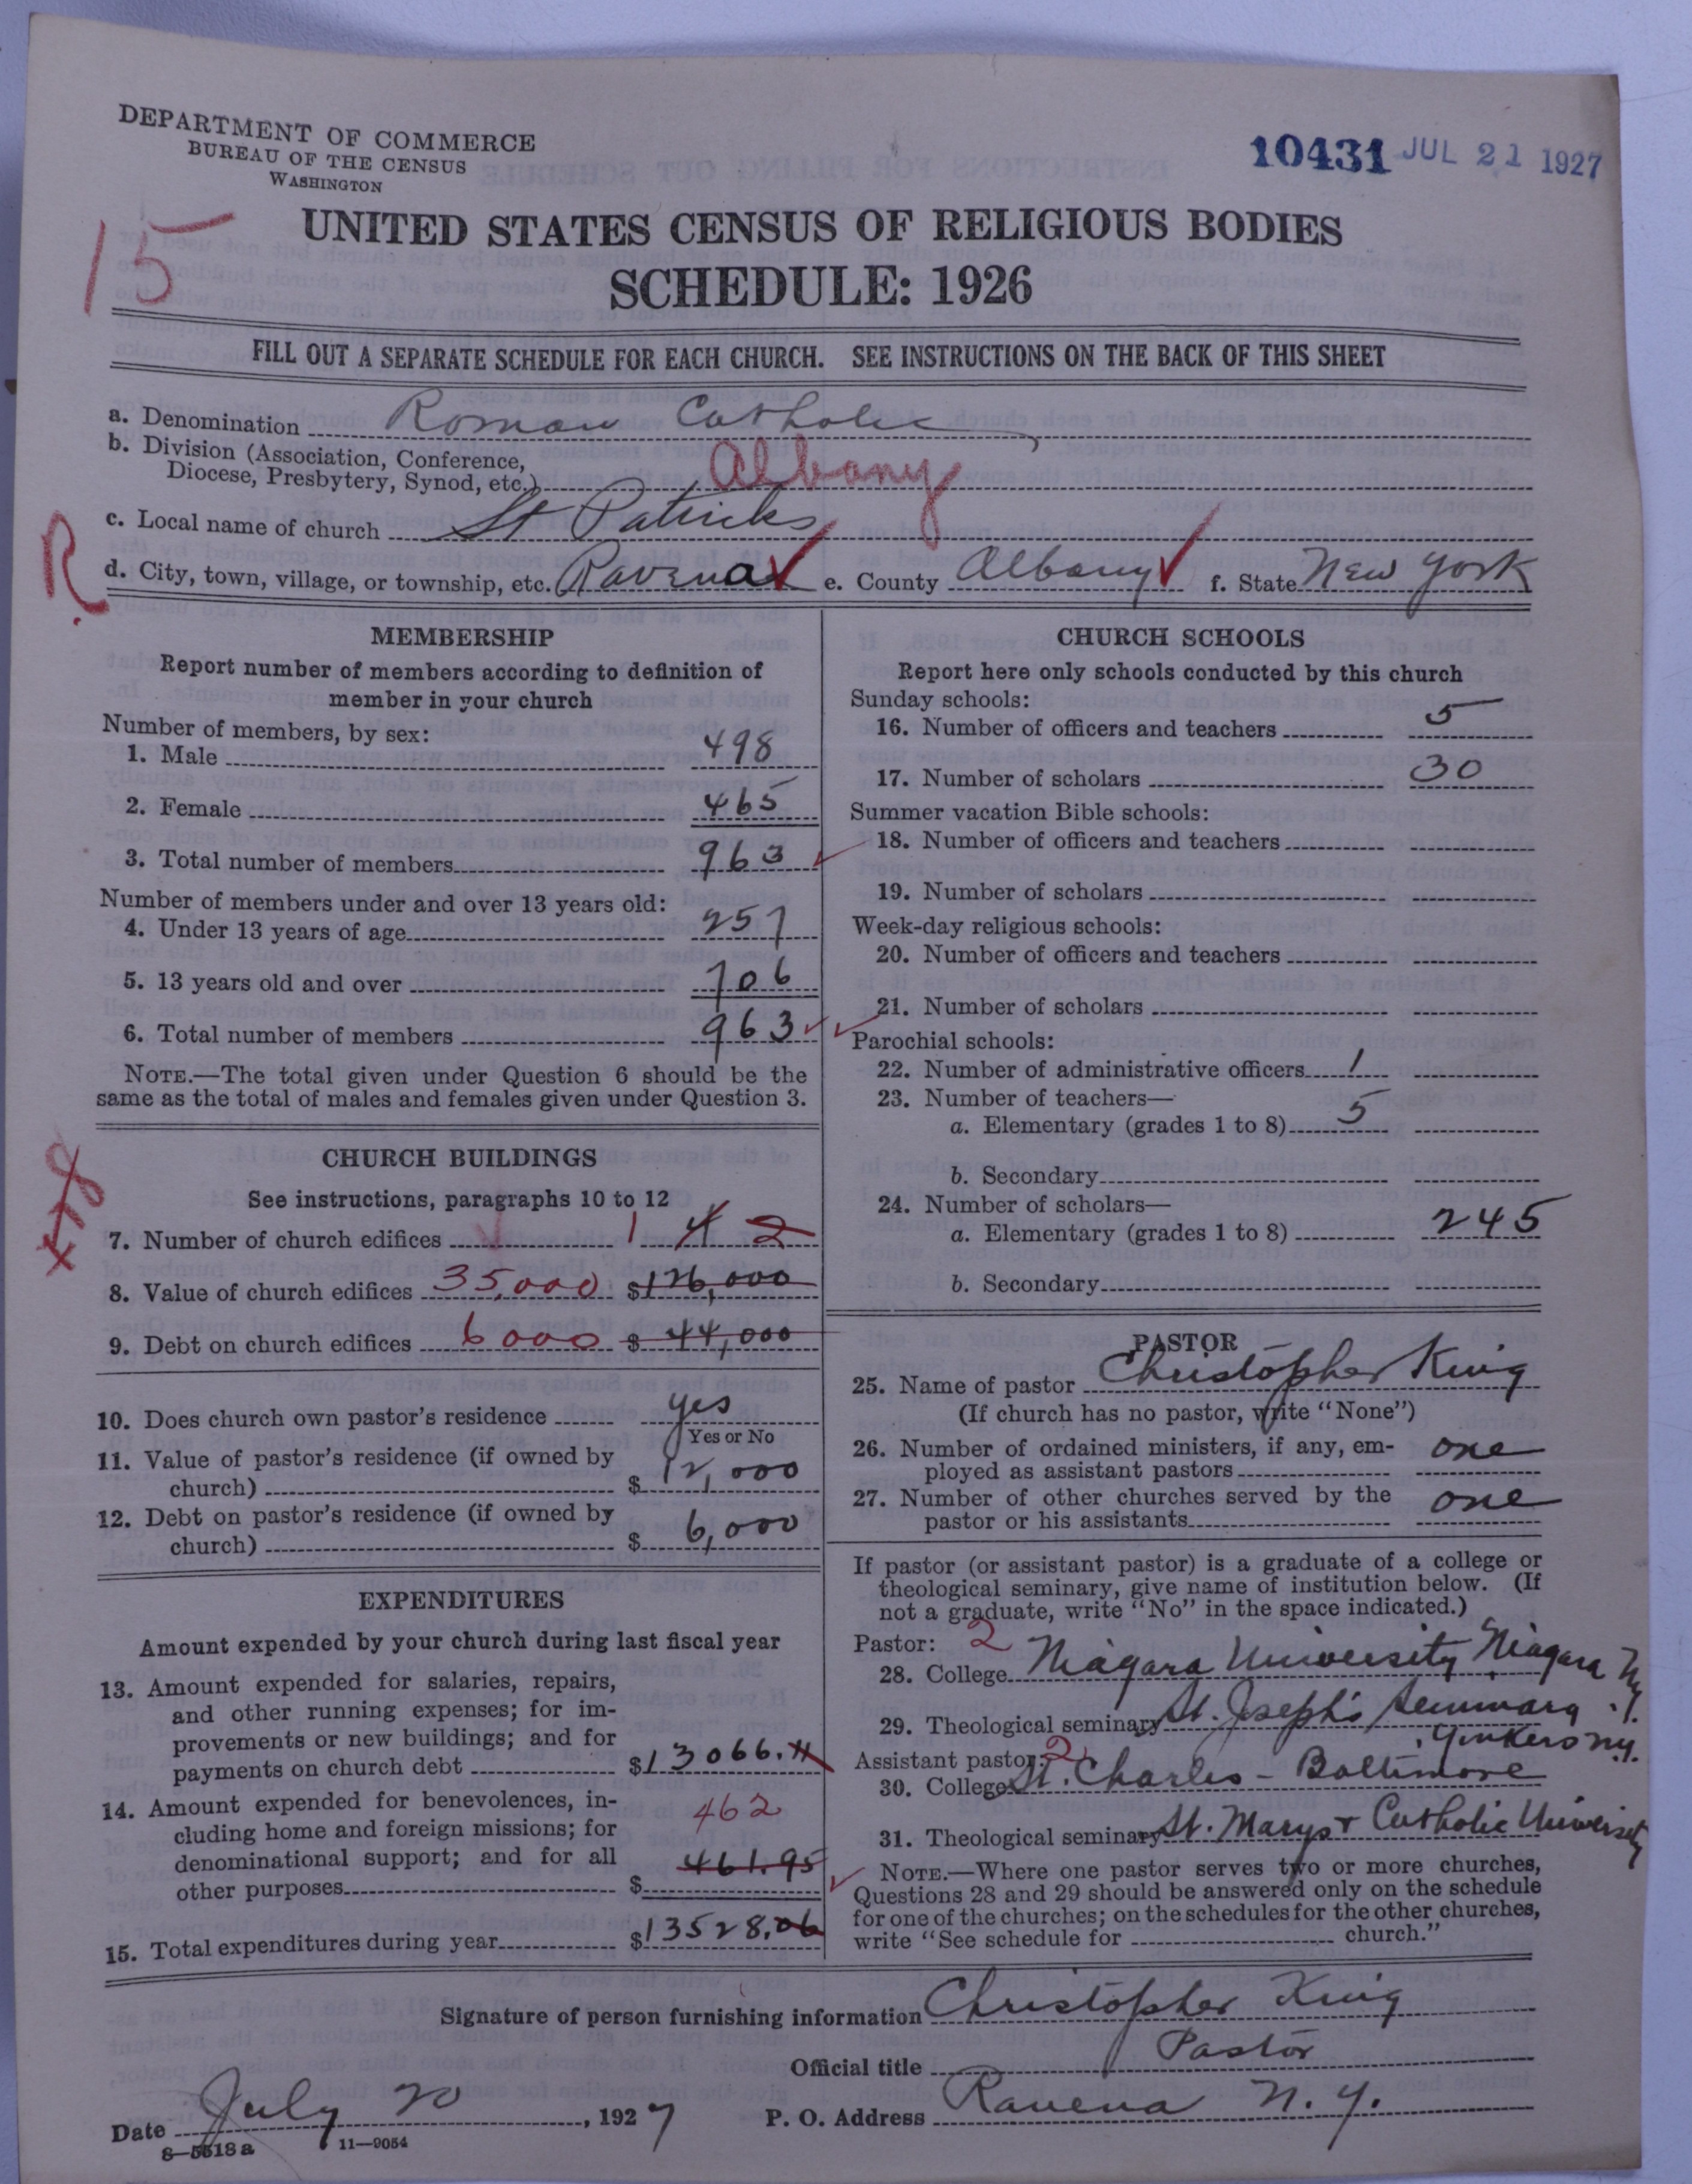 DEPARTMENT OF COMMERCE
BUREAU OF THE CENSUS
WASHINGTON
10431 JUL 21 1927
15
UNITED STATES CENSUS OF RELIGIOUS BODIES
SCHEDULE: 1926
FILL OUT A SEPARATE SCHEDULE FOR EACH CHURCH. SEE INSTRUCTIONS ON THE BACK OF THIS SHEET
a. Denomination Roman Catholic
b. Division (Association, Conference,
Diocese, Presbytery, Synod, etc.) Albany
c. Local name of church St Patricks
R
d. City, town, village, or township, etc. Ravena e. County Albany f. State New York
MEMBERSHIP
Report number of members according to definition of
member in your church
Number of members, by sex:
1. Male 498
2. Female 465
3. Total number of members 963
Number of members under and over 13 years old:
4. Under 13 years of age 257
5. 13 years old and over 706
6. Total number of members 963
NOTE.—The total given under Question 6 should be the
same as the total of males and females given under Question 3.
CHURCH BUILDINGS
See instructions, paragraphs 10 to 12
7. Number of church edifices 1 4 2
8. Value of church edifices 35,000 $126,000
9. Debt on church edifices 6000 $44,000
10. Does church own pastor's residence yes
Yes or No
11. Value of pastor's residence (if owned by
church) $12,000
12. Debt on pastor's residence (if owned by
church) $6,000
EXPENDITURES
Amount expended by your church during last fiscal year
13. Amount expended for salaries, repairs,
and other running expenses; for im-
provements or new buildings; and for
payments on church debt $13066.11
14. Amount expended for benevolences, in-
cluding home and foreign missions; for
denominational support; and for all
other purposes $ 462 461.95
15. Total expenditures during year $13528.06
CHURCH SCHOOLS
Report here only schools conducted by this church
Sunday schools:
16. Number of officers and teachers 5
17. Number of scholars 30
Summer vacation Bible schools:
18. Number of officers and teachers
19. Number of scholars
Week-day religious schools:
20. Number of officers and teachers
21. Number of scholars
Parochial schools:
22. Number of administrative officers 1
23. Number of teachers—
a. Elementary (grades 1 to 8) 5
b. Secondary
24. Number of scholars—
a. Elementary (grades 1 to 8) 245
b. Secondary
PASTOR
25. Name of pastor Christopher King
(If church has no pastor, write "None")
26. Number of ordained ministers, if any, em-
ployed as assistant pastors one
27. Number of other churches served by the
pastor or his assistants one
If pastor (or assistant pastor) is a graduate of a college or
theological seminary, give name of institution below. (If
not a graduate, write "No" in the space indicated.)
Pastor: 2
28. College Niagara University Niagara N.Y.
29. Theological seminary St. Joseph's Seminary
Yonkers N.Y.
Assistant pastor: 2
30. College St. Charles - Baltimore
31. Theological seminary St. Marys + Catholic University
NOTE.—Where one pastor serves two or more churches,
Questions 28 and 29 should be answered only on the schedule
for one of the churches; on the schedules for the other churches,
write "See schedule for church."
Signature of person furnishing information Christopher King
Official title Pastor
Date July 20, 1927 P. O. Address Ravena N.Y.
8—5518a 11—9054